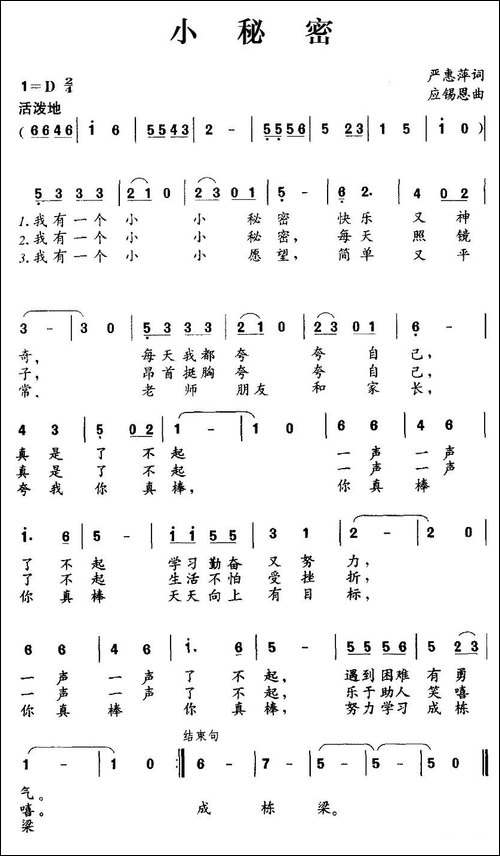 小 秘 密
严惠萍词
1=D 2/4
应锡恩曲
活泼地
(6646 | i 6 | 5543 | 2 - | 5556 | 5 23 | 1 5 | i 0) |
5 3 33 | 210 | 2301 | 5 - | 6 2. | 4 02 |
1.我有一个 小 小 秘 密 快 乐 又 神
2.我有一个 小 小 秘 密, 每 天 照 镜
3.我有一个 小 小 愿 望, 简 单 又 平
3 - | 3 0 | 5 3 3 3 | 210 | 23 01 | 6 - |
奇, 每天我都 夸 夸 自 己,
子, 昂首挺胸 夸 夸 自 己,
常. 老 师 朋友 和 家 长,
4 3 | 5 02 | 1 - | 1 0 | 6 6 | 4 6 |
真 是 了 不 起 一 声 一 声
真 是 了 不 起 一 声 一 声
夸 我 你 真 棒, 你 真 棒
i. 6 | 5 - | i i 5 5 | 3 1 | 2 - | 2 0 |
了 不 起 学习勤奋 又 努 力,
了 不 起 生活不怕 受 挫 折,
你 真 棒 天天向上 有 目 标,
6 6 | 4 6 | i. 6 | 5 - | 5 5 5 6 | 5 23 |
一 声 一 声 了 不 起, 遇到困难 有 勇
一 声 一 声 了 不 起, 乐于助人 笑 嘻
你 真 棒 你 真 棒, 努力学习 成 栋
结束句
1 - | 1 0 :‖ 6 - | 7 - | 5 - | 5 - | 5 0 ‖
气。
嘻。 成 栋 梁。
梁